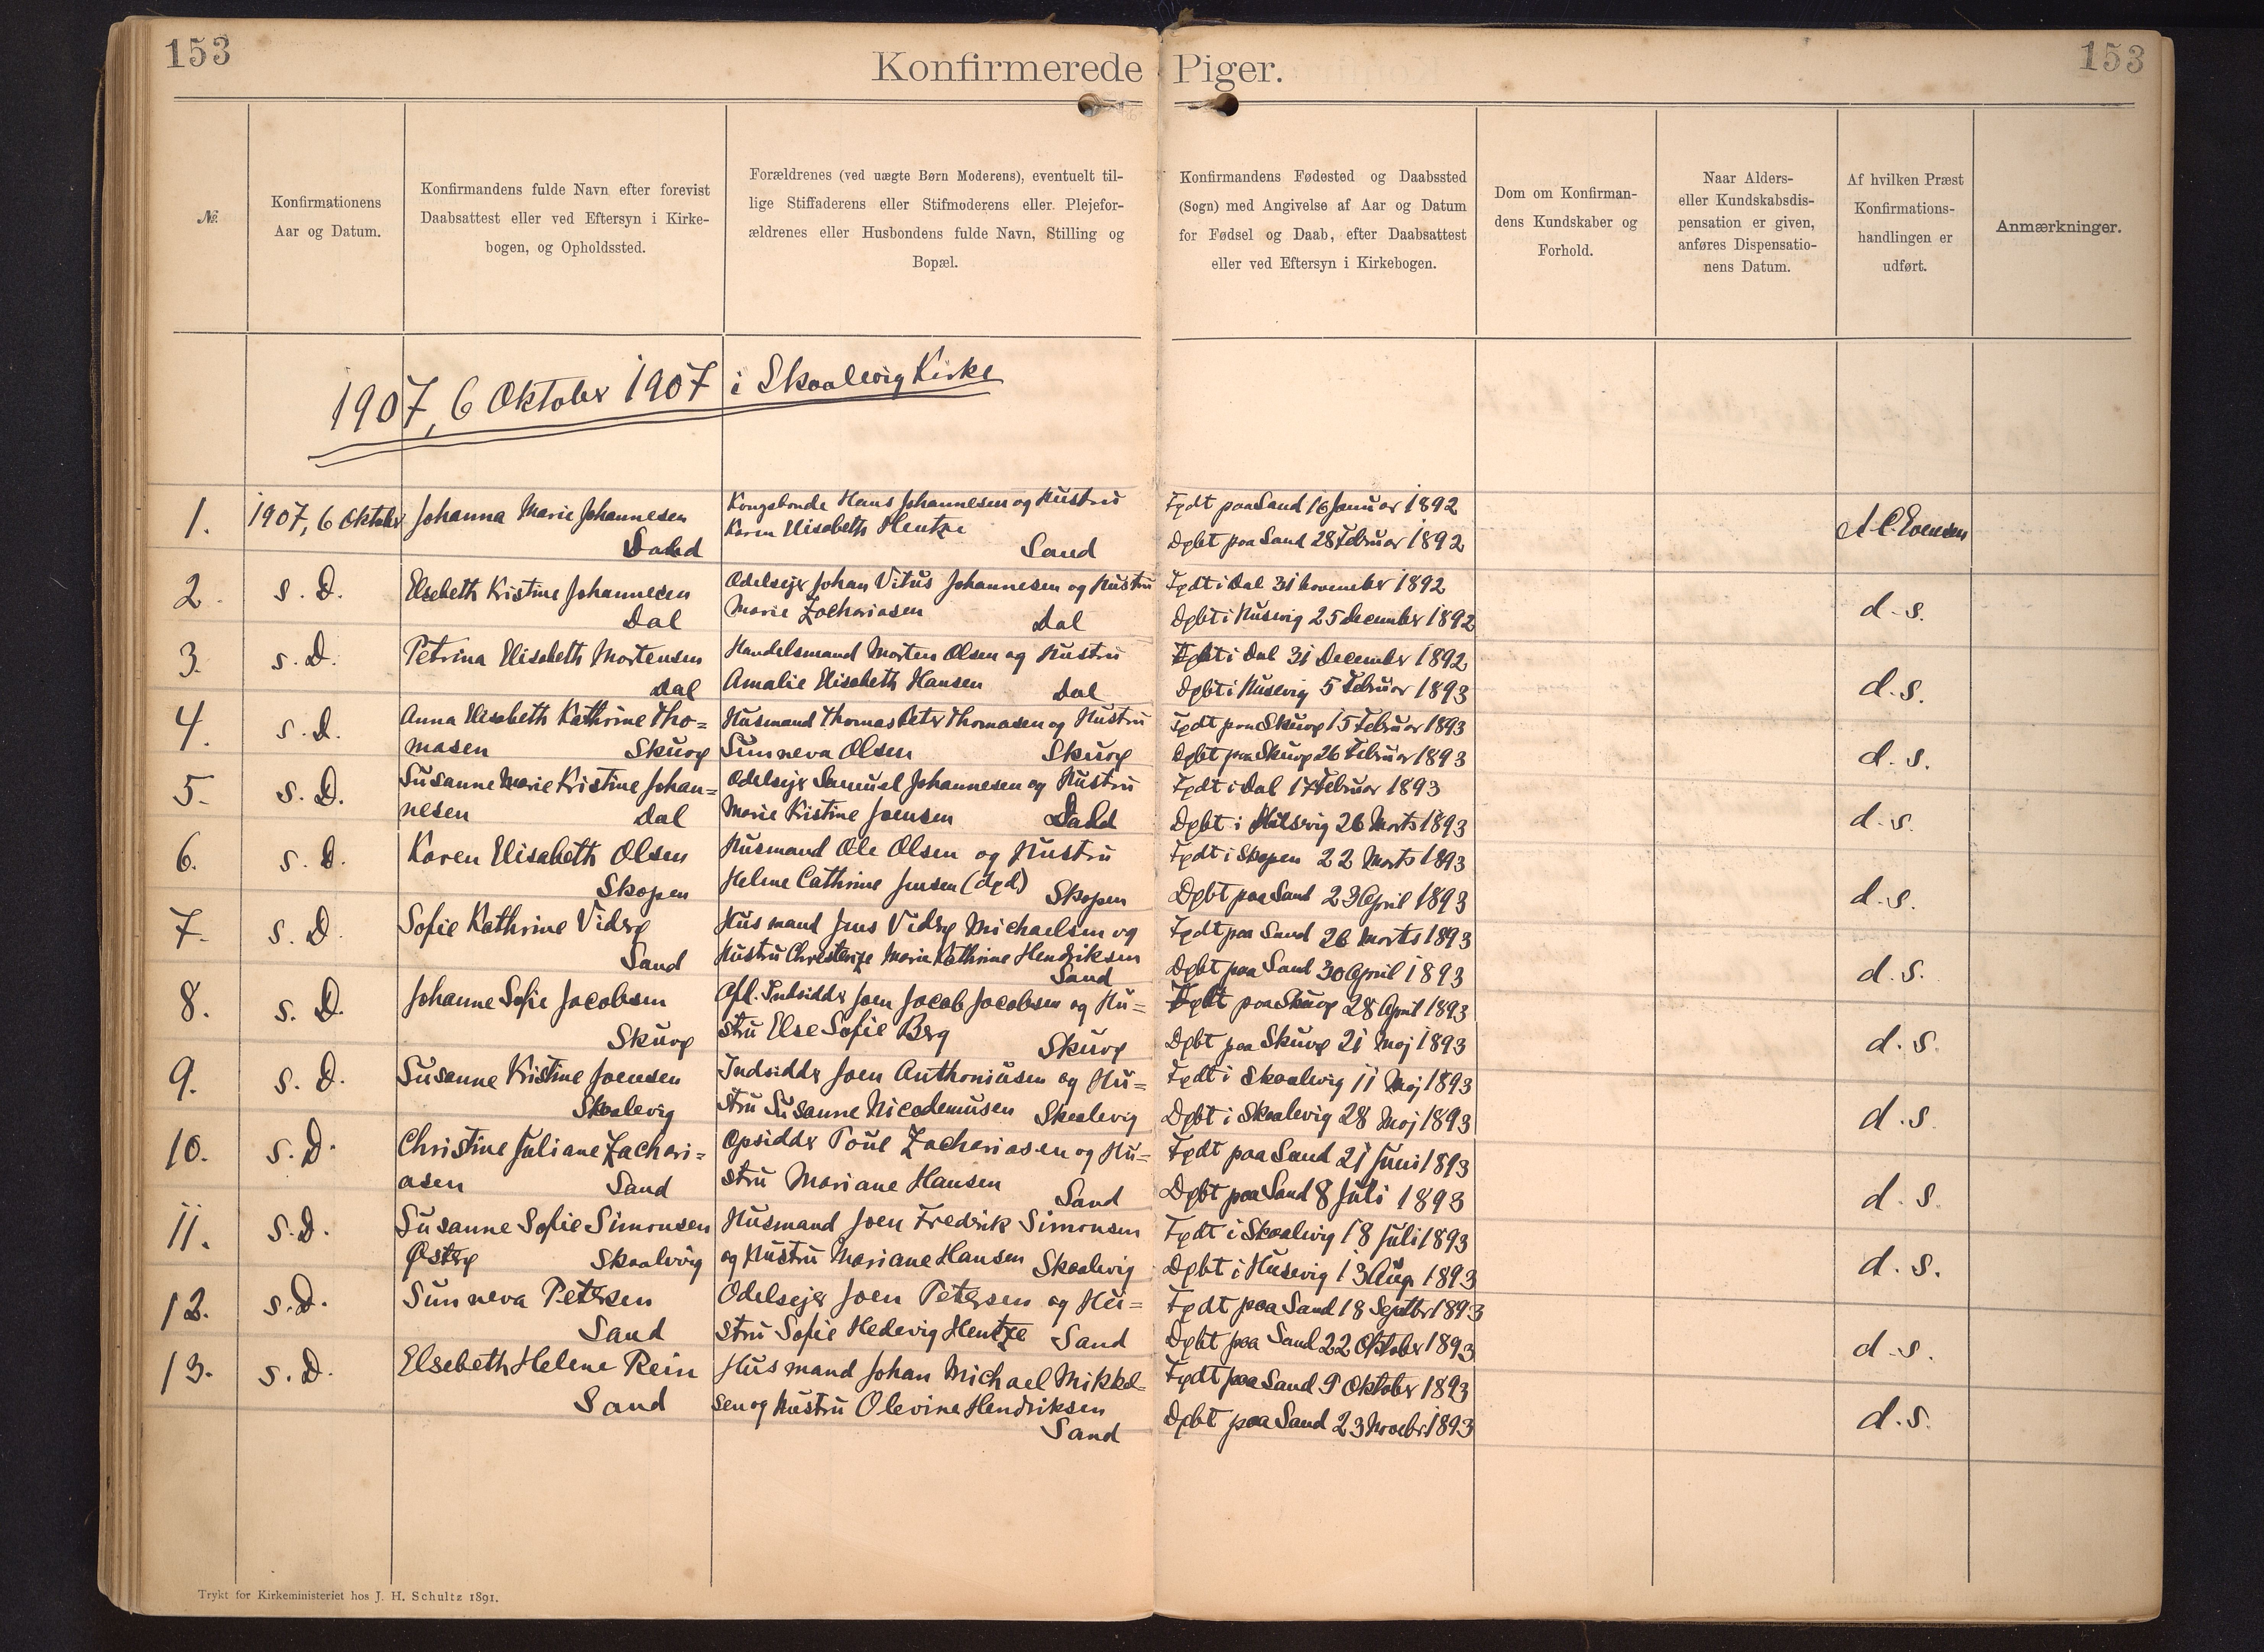 153
Konfirmerede Piger.
153
№
Konfirmationens
Aar og Datum.
Konfirmandens fulde Navn efter forevist
Daabsattest eller ved Eftersyn i Kirke-
bogen, og Opholdssted.
Forældrenes (ved uægte Børn Moderens), eventuelt til-
lige Stiffaderens eller Stifmoderens eller Plejefor-
ældrenes eller Husbondens fulde Navn, Stilling og
Bopæl.
Konfirmandens Fødested og Daabssted
(Sogn) med Angivelse af Aar og Datum
for Fødsel og Daab, efter Daabsattest
eller ved Eftersyn i Kirkebogen.
Dom om Konfirman-
dens Kundskaber og
Forhold.
Naar Alders-
eller Kundskabsdis-
pensation er given,
anføres Dispensatio-
nens Datum.
Af hvilken Præst
Konfirmations-
handlingen er
udført.
Anmærkninger.
1907, 6 Oktober 1907 i Skaalevig Kirke
1. 1907, 6 Oktober Johanna Marie Johannesen Kongsbonde Hans Johannesen og Hustru Født paa Sand 16 Januar 1892 A. C. Evensen
Sand Karen Elisabeth Hentze Sand Døbt paa Sand 28 Februar 1892
2. s. D. Elsebeth Kristine Johannesen Odelsejer Johan Vitus Johannesen og Hustru Født i Dal 31 November 1892 d. s.
Dal Marie Zachariasen Dal Døbt i Husevig 25 December 1892
3. s. D. Petrina Elisabeth Mortensen Handelsmand Morten Olsen og Hustru Født i Dal 31 December 1892 d. s.
Dal Amalie Elisabeth Hansen Dal Døbt i Husevig 5 Februar 1893
4. s. D. Anna Elisabeth Kathrine Tho= Husmand Thomas Peter Thomasen og Hustru Født paa Skuvø 15 Februar 1893 d. s.
masen Skuvø Sunneva Olsen Skuvø Døbt paa Skuvø 26 Februar 1893
5. s. D. Susanne Marie Kristine Johan= Odelsejer Samuel Johannesen og Hustru Født i Dal 17 Februar 1893 d. s.
nesen Dal Marie Kristine Joensen Døbt i 26 Marts 1893
6. s. D. Karen Elisabeth Olsen Husmand Ole Olsen og Hustru Født i Skopen 22 Marts 1893 d. s.
Skopen Helene Cathrine Jensen (død) Skopen Døbt paa Sand 23 April 1893
7. s. D. Sofie Kathrine Viderø Husmand Jens Viderø Michaelsen og Født paa Sand 26 Marts 1893 d. s.
Sand Hustru Marie Kathrine Hendriksen Sand Døbt paa Sand 30 April 1893
8. s. D. Johanne Sofie Jacobsen Afd. Indsidder Joen Jacob Jacobsen og Hu= Født paa Skuvø 28 April 1893 d. s.
Skuvø stru Else Sofie Berg Skuvø Døbt paa Skuvø 21 Maj 1893
9. s. D. Susanne Kristine Joensen Indsidder Joen Anthoniusen og Hu= Født i Skaalevig 11 Maj 1893 d. s.
Skaalevig stru Susanne Nicodemusen Skaalevig Døbt i Skaalevig 28 Maj 1893
10. s. D. Christine Juliane Zachari= Opsidder Poul Zachariasen og Hu= Født paa Sand 21 Juni 1893 d. s.
asen Sand stru Mariane Hansen Sand Døbt paa Sand 8 Juli 1893
11. s. D. Susanne Sofie Simonsen Husmand Joen Fredrik Simonsen Født i Skaalevig 18 Juli 1893 d. s.
Østerø Skaalevig og Hustru Mariane Hansen Skaalevig Døbt i Husevig 13 Aug. 1893
12. s. D. Sunneva Petersen Odelsejer Joen Petersen og Hu= Født paa Sand 18 Septbr 1893 d. s.
Sand stru Sofie Hedevig Hentze Sand Døbt paa Sand 22 Oktober 1893
13. s. D. Elsebeth Helene Rein Husmand Johan Michael Mikkel= Født paa Sand 9 Oktober 1893 d. s.
Sand sen og Hustru Olevine Hendriksen Sand Døbt paa Sand 23 Novebr 1893
Trykt for Kirkeministeriet hos J. H. Schultz 1891.